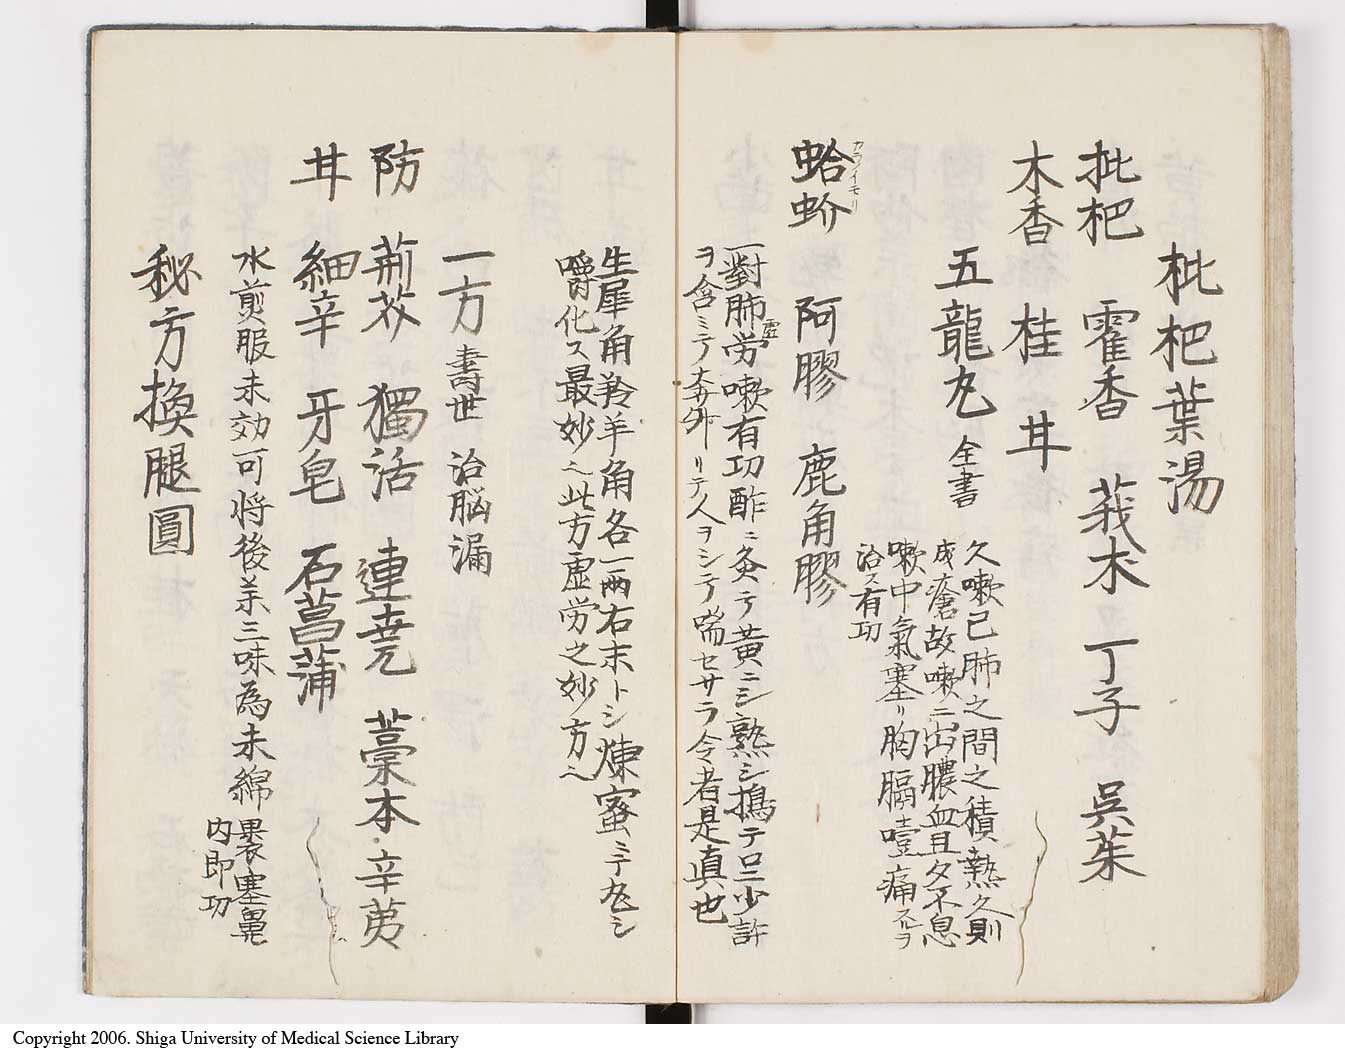 枇杷葉湯
枇杷 霍香 莪朮 丁子 呉茱
木香 桂 井
五龍丸 全書
久嗽已肺之間之積熱久則
成瘡故嗽ニ出膿血旦夕不息
嗽中氣塞リ胸膈噎痛スルヲ
治ス有功
蛤蚧 阿膠 鹿角膠
カライモリ
一對肺労嗽有功酢ニ灸テ黄ニシ熟シ搗テ口ニ少許
虚
ヲ含ミテ奔リテ人ヲシテ喘セサラ令者是真也
生犀角羚羊角各一兩右末トシ煉蜜ミテ丸シ
嚼化ス最妙也此方虚労之妙方也
一方 壽世 治脳漏
防 荊芥 獨活 連堯 藁本 辛荑
井 細辛 牙皂 石菖蒲
水煎服未効可将後羔三味為末綿
裹塞鼻
内即功
秘方換腿圓
Copyright 2006. Shiga University of Medical Science Library